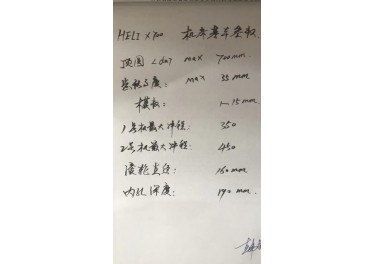 HELI X700 机床基本参数
顶圆 Lday max 700mm
最大高度: max 35mm
模数: 1-15mm
1号机最大冲程: 350
2号机最大冲程: 450
滚轮直径: 160mm
内孔深度: 190mm